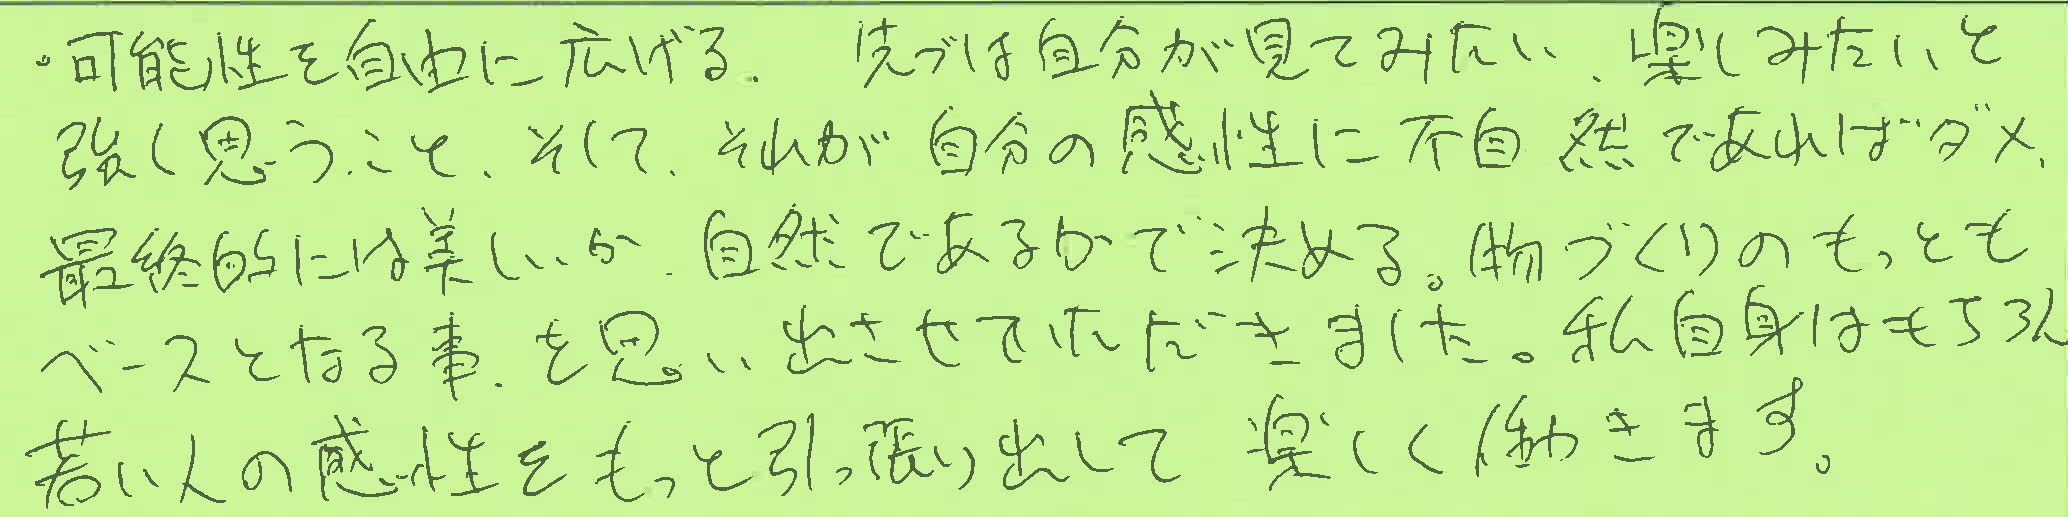 ・可能性を自由に広げる、先づは自分が見てみたい、楽しみたいと
強く思うこと、そして、それが自分の感性に不自然であればダメ、
最終的には美しいか、自然であるかで決める。物づくりのもっとも
ベースとなる事、を思い出させていただきました。私自身はもちろん
若い人の感性をもっと引っ張り出して楽しく働きます。